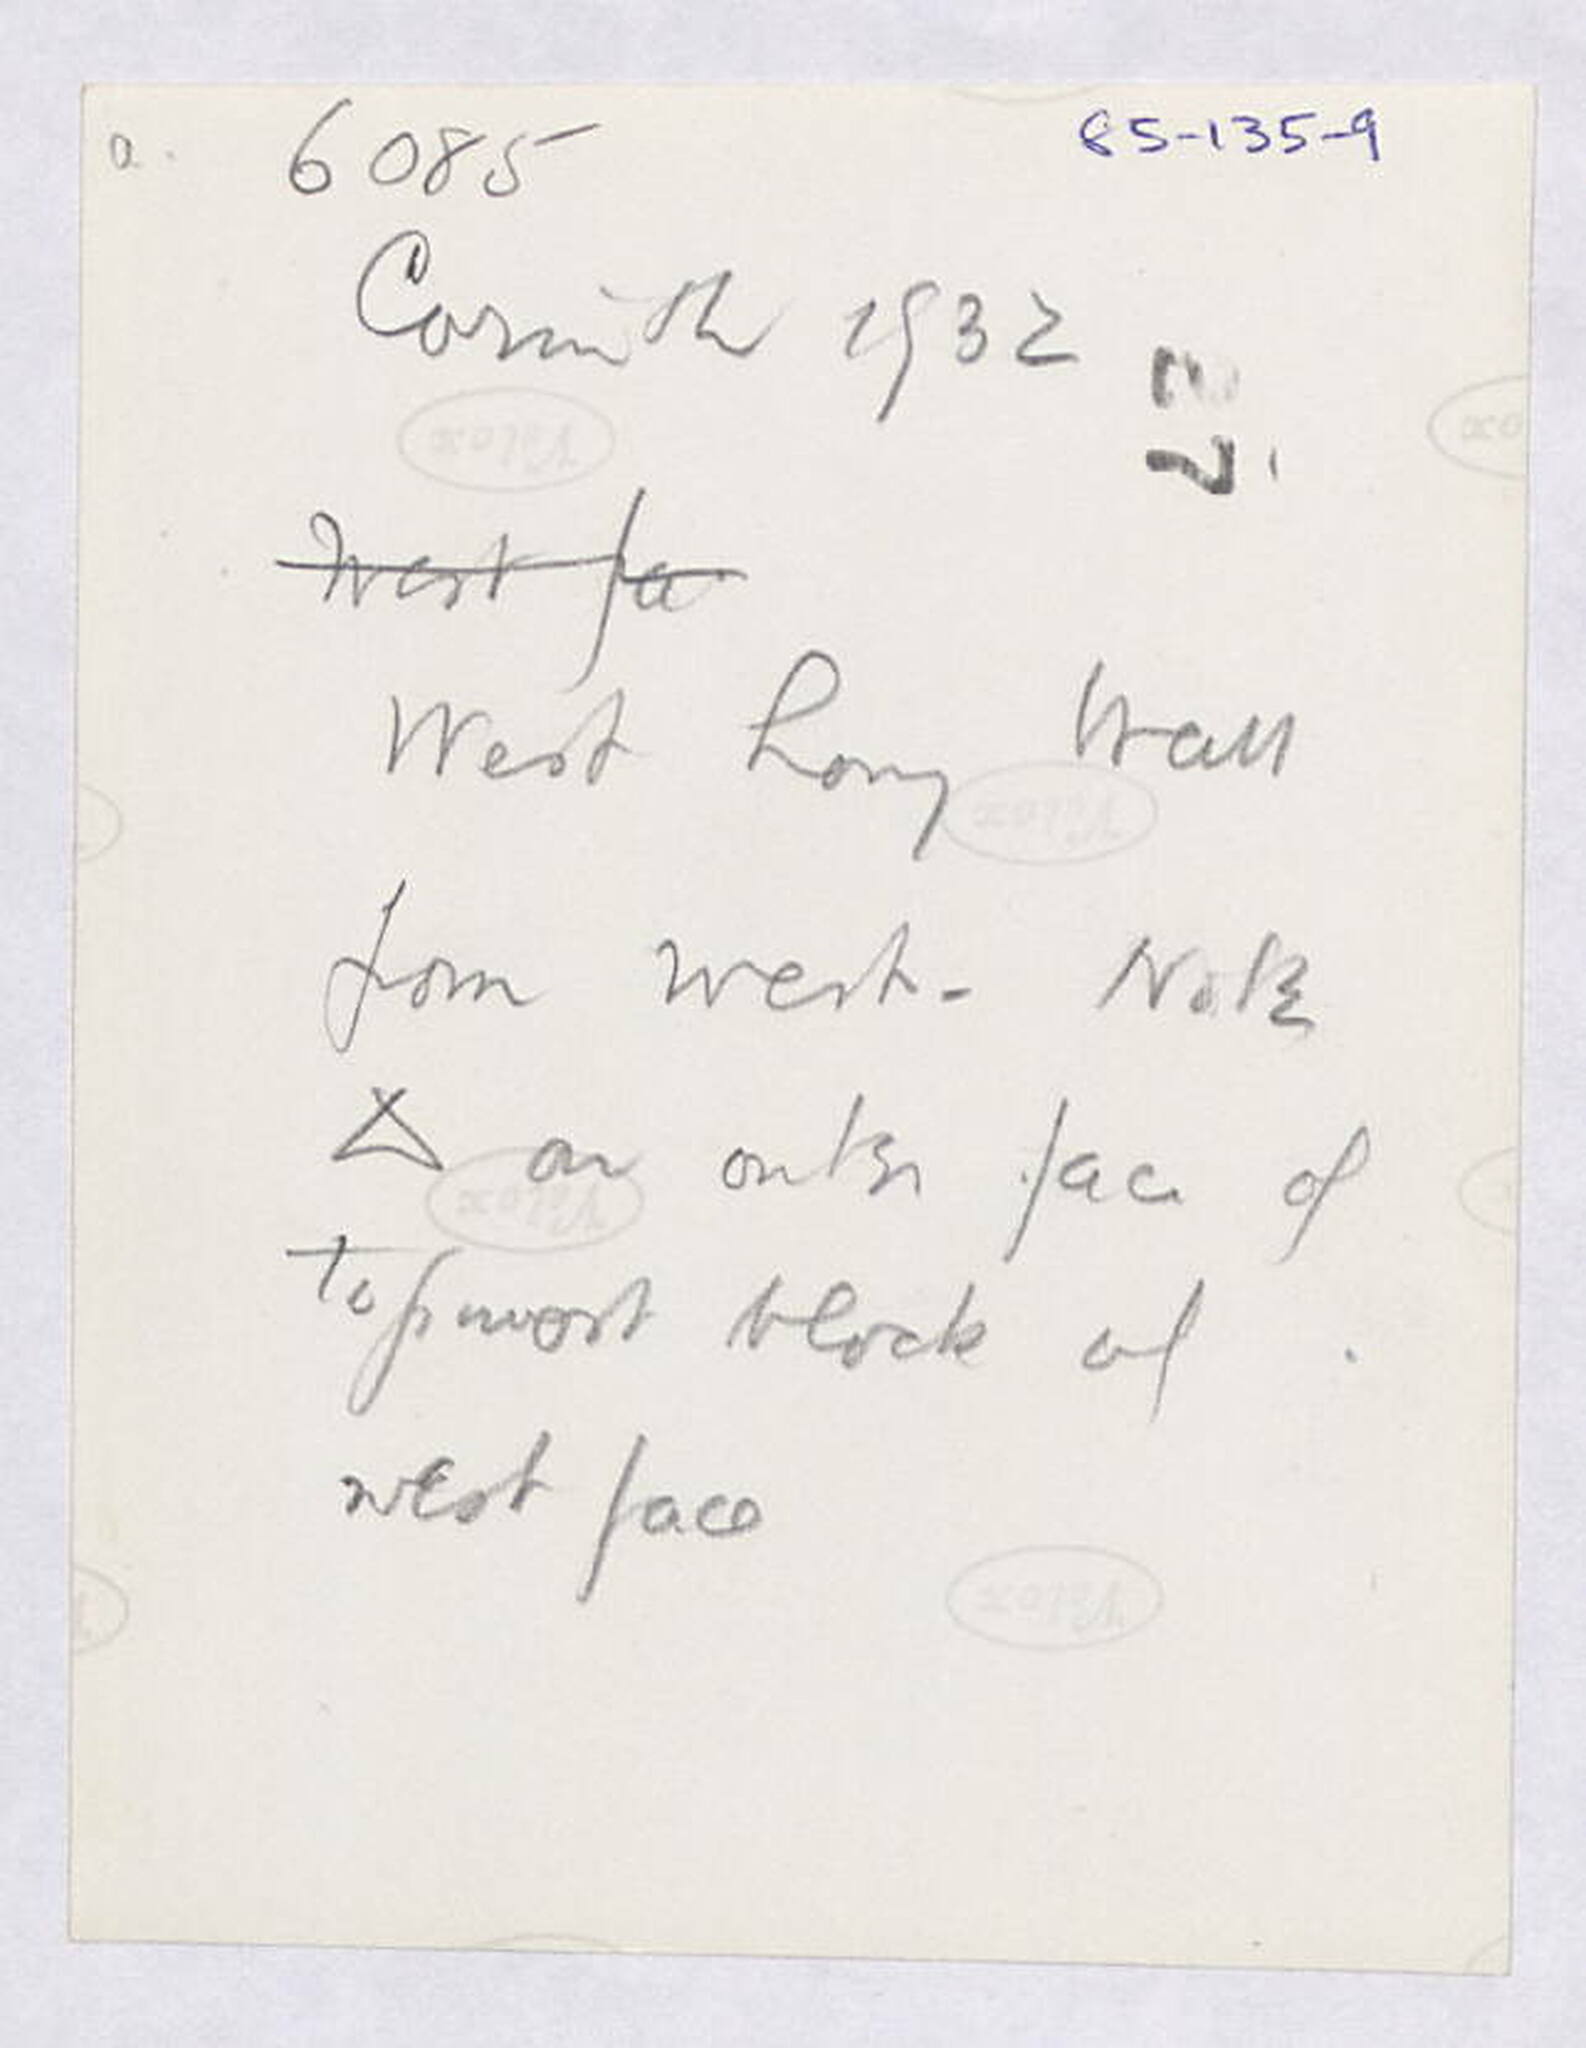 a. 6085 85-135-9
Corinth 1932
West fa
West Long Wall
from west - Note
Δ on outer face of
topmost block of
west face
Velox
Velox
Velox
Velox